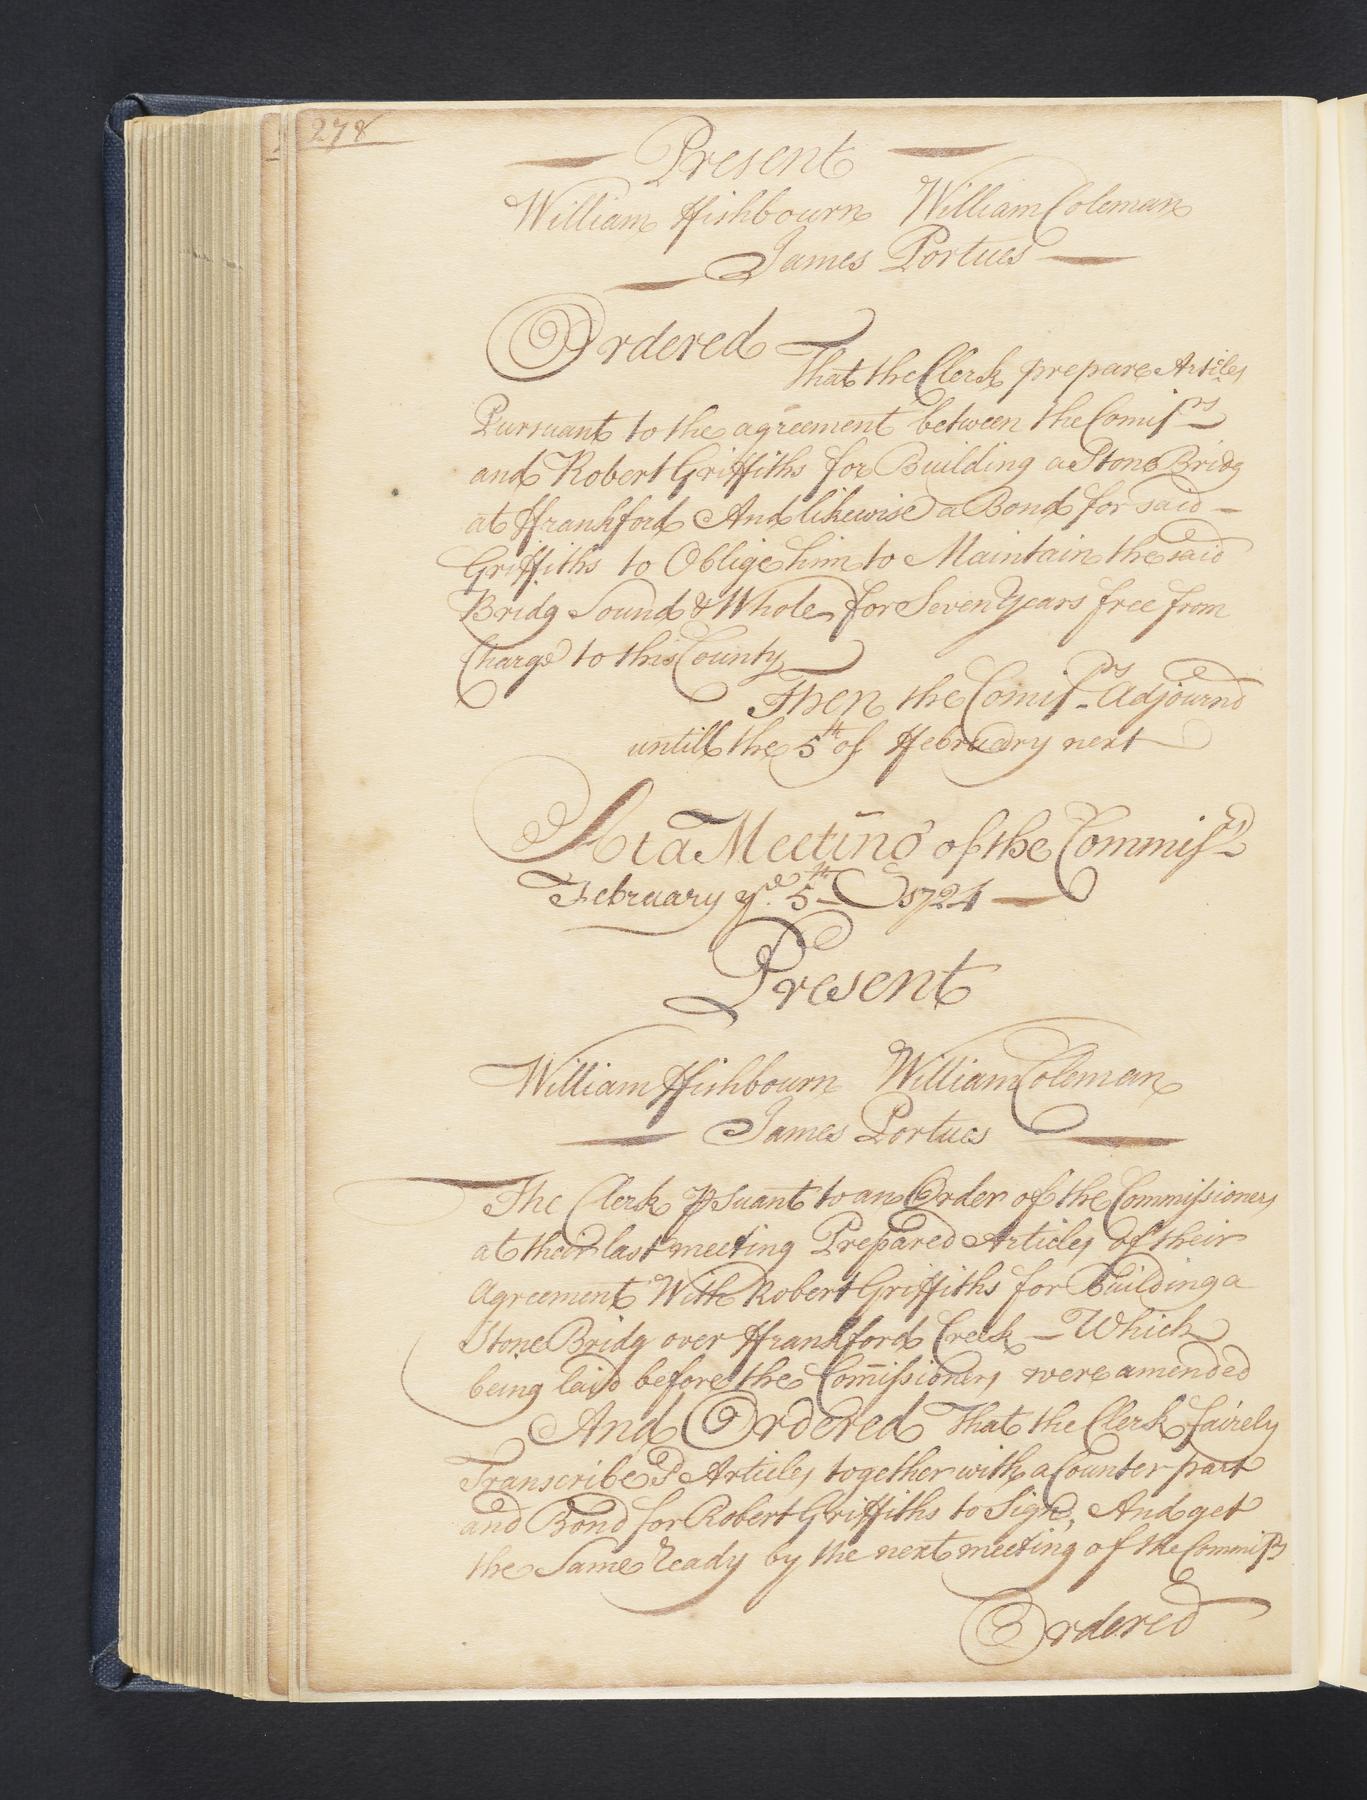 278
Present
William Ffishbourn William Coleman
James Portues
Ordered
That the Clerk prepare Articles
Pursuant to the agreement between the Comiſrs
and Robert Griffiths for Building a Stone Bridg
at Ffrankford And likewise a Bond for said
Griffiths to Oblige him to Maintain the said
Bridg Sound & Whole for Seven Years free from
Charge to this County
Then the Comiſrs Adjournd
untill the 5th of Ffebruary next
At a Meeting of the Commiſrs
February ye 5th 1724
Present
William Ffishbourn William Coleman
James Portues
The Clerk psuant to an Order of the Commiſsioners
at their last meeting Prepared Articles of their
Agreement With Robert Griffiths for Building a
Stone Bridg over Ffrankford Creek — Which
being laid before the Com̄iſsioners were amended
And Ordered That the Clerk fairely
Transcribe sd Articles together with a Counter part
and Bond for Robert Griffiths to Sign, And get
the Same ready by the next meeting of the Commiſrs
Ordered